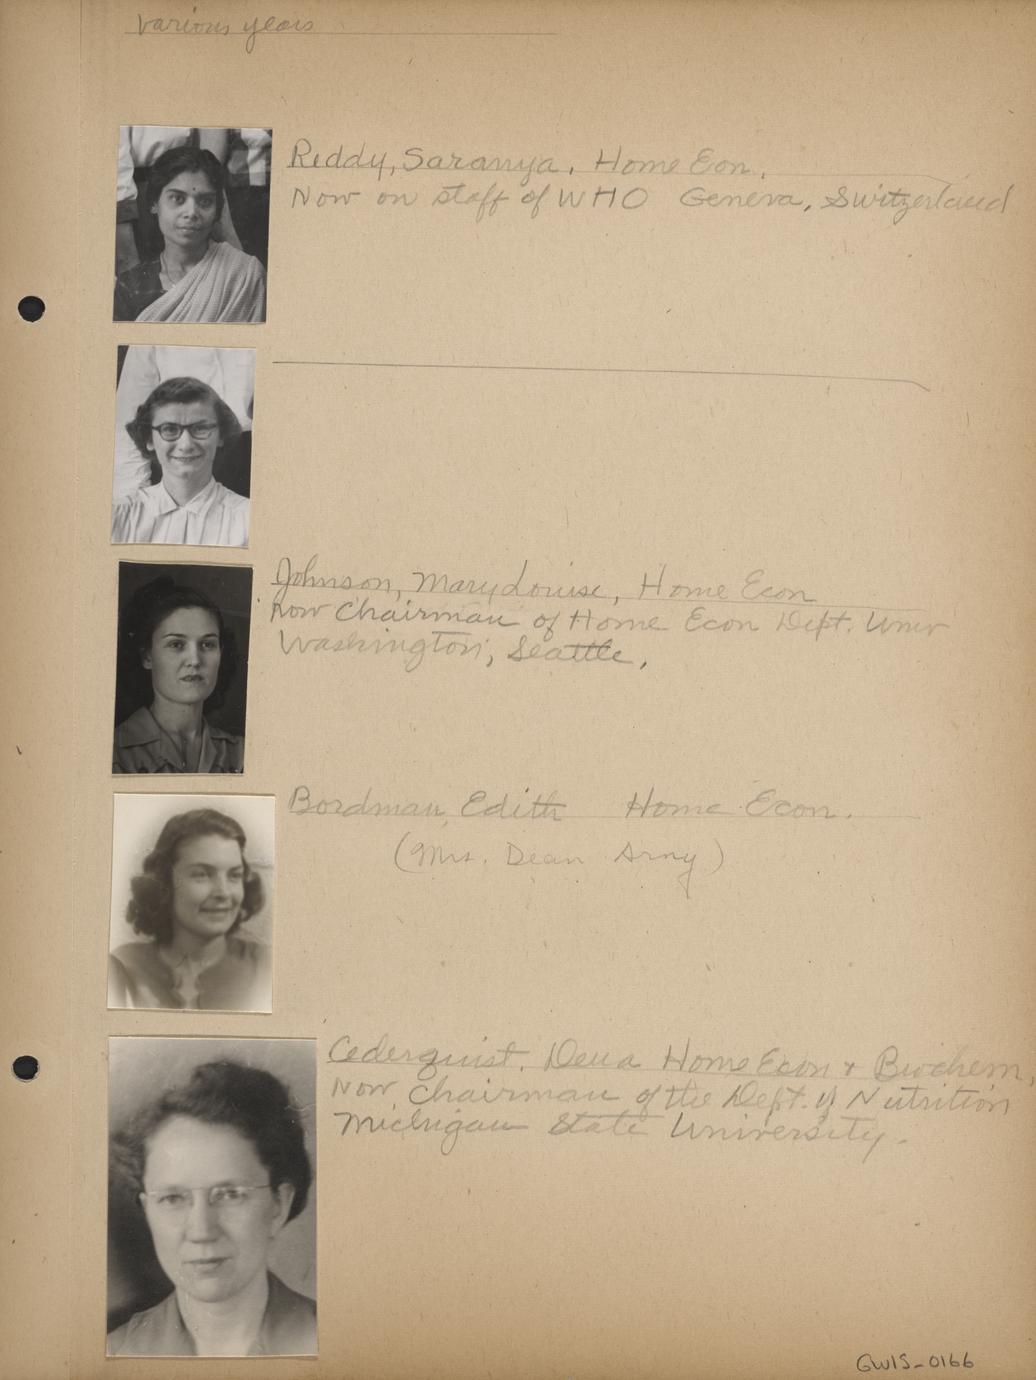 various years
Reddy, Saranya, Home Econ.
Now on staff of WHO Geneva, Switzerland
Johnson, Mary Louise, Home Econ
now Chairman of Home Econ Dept. Univ
Washington, Seattle,
Bordman, Edith Home Econ.
(Mrs. Dean Arny)
Cederquist, Dena Home Econ & Biochem,
Now Chairman of the Dept. of Nutrition
Michigan State University.
GWIS-0166